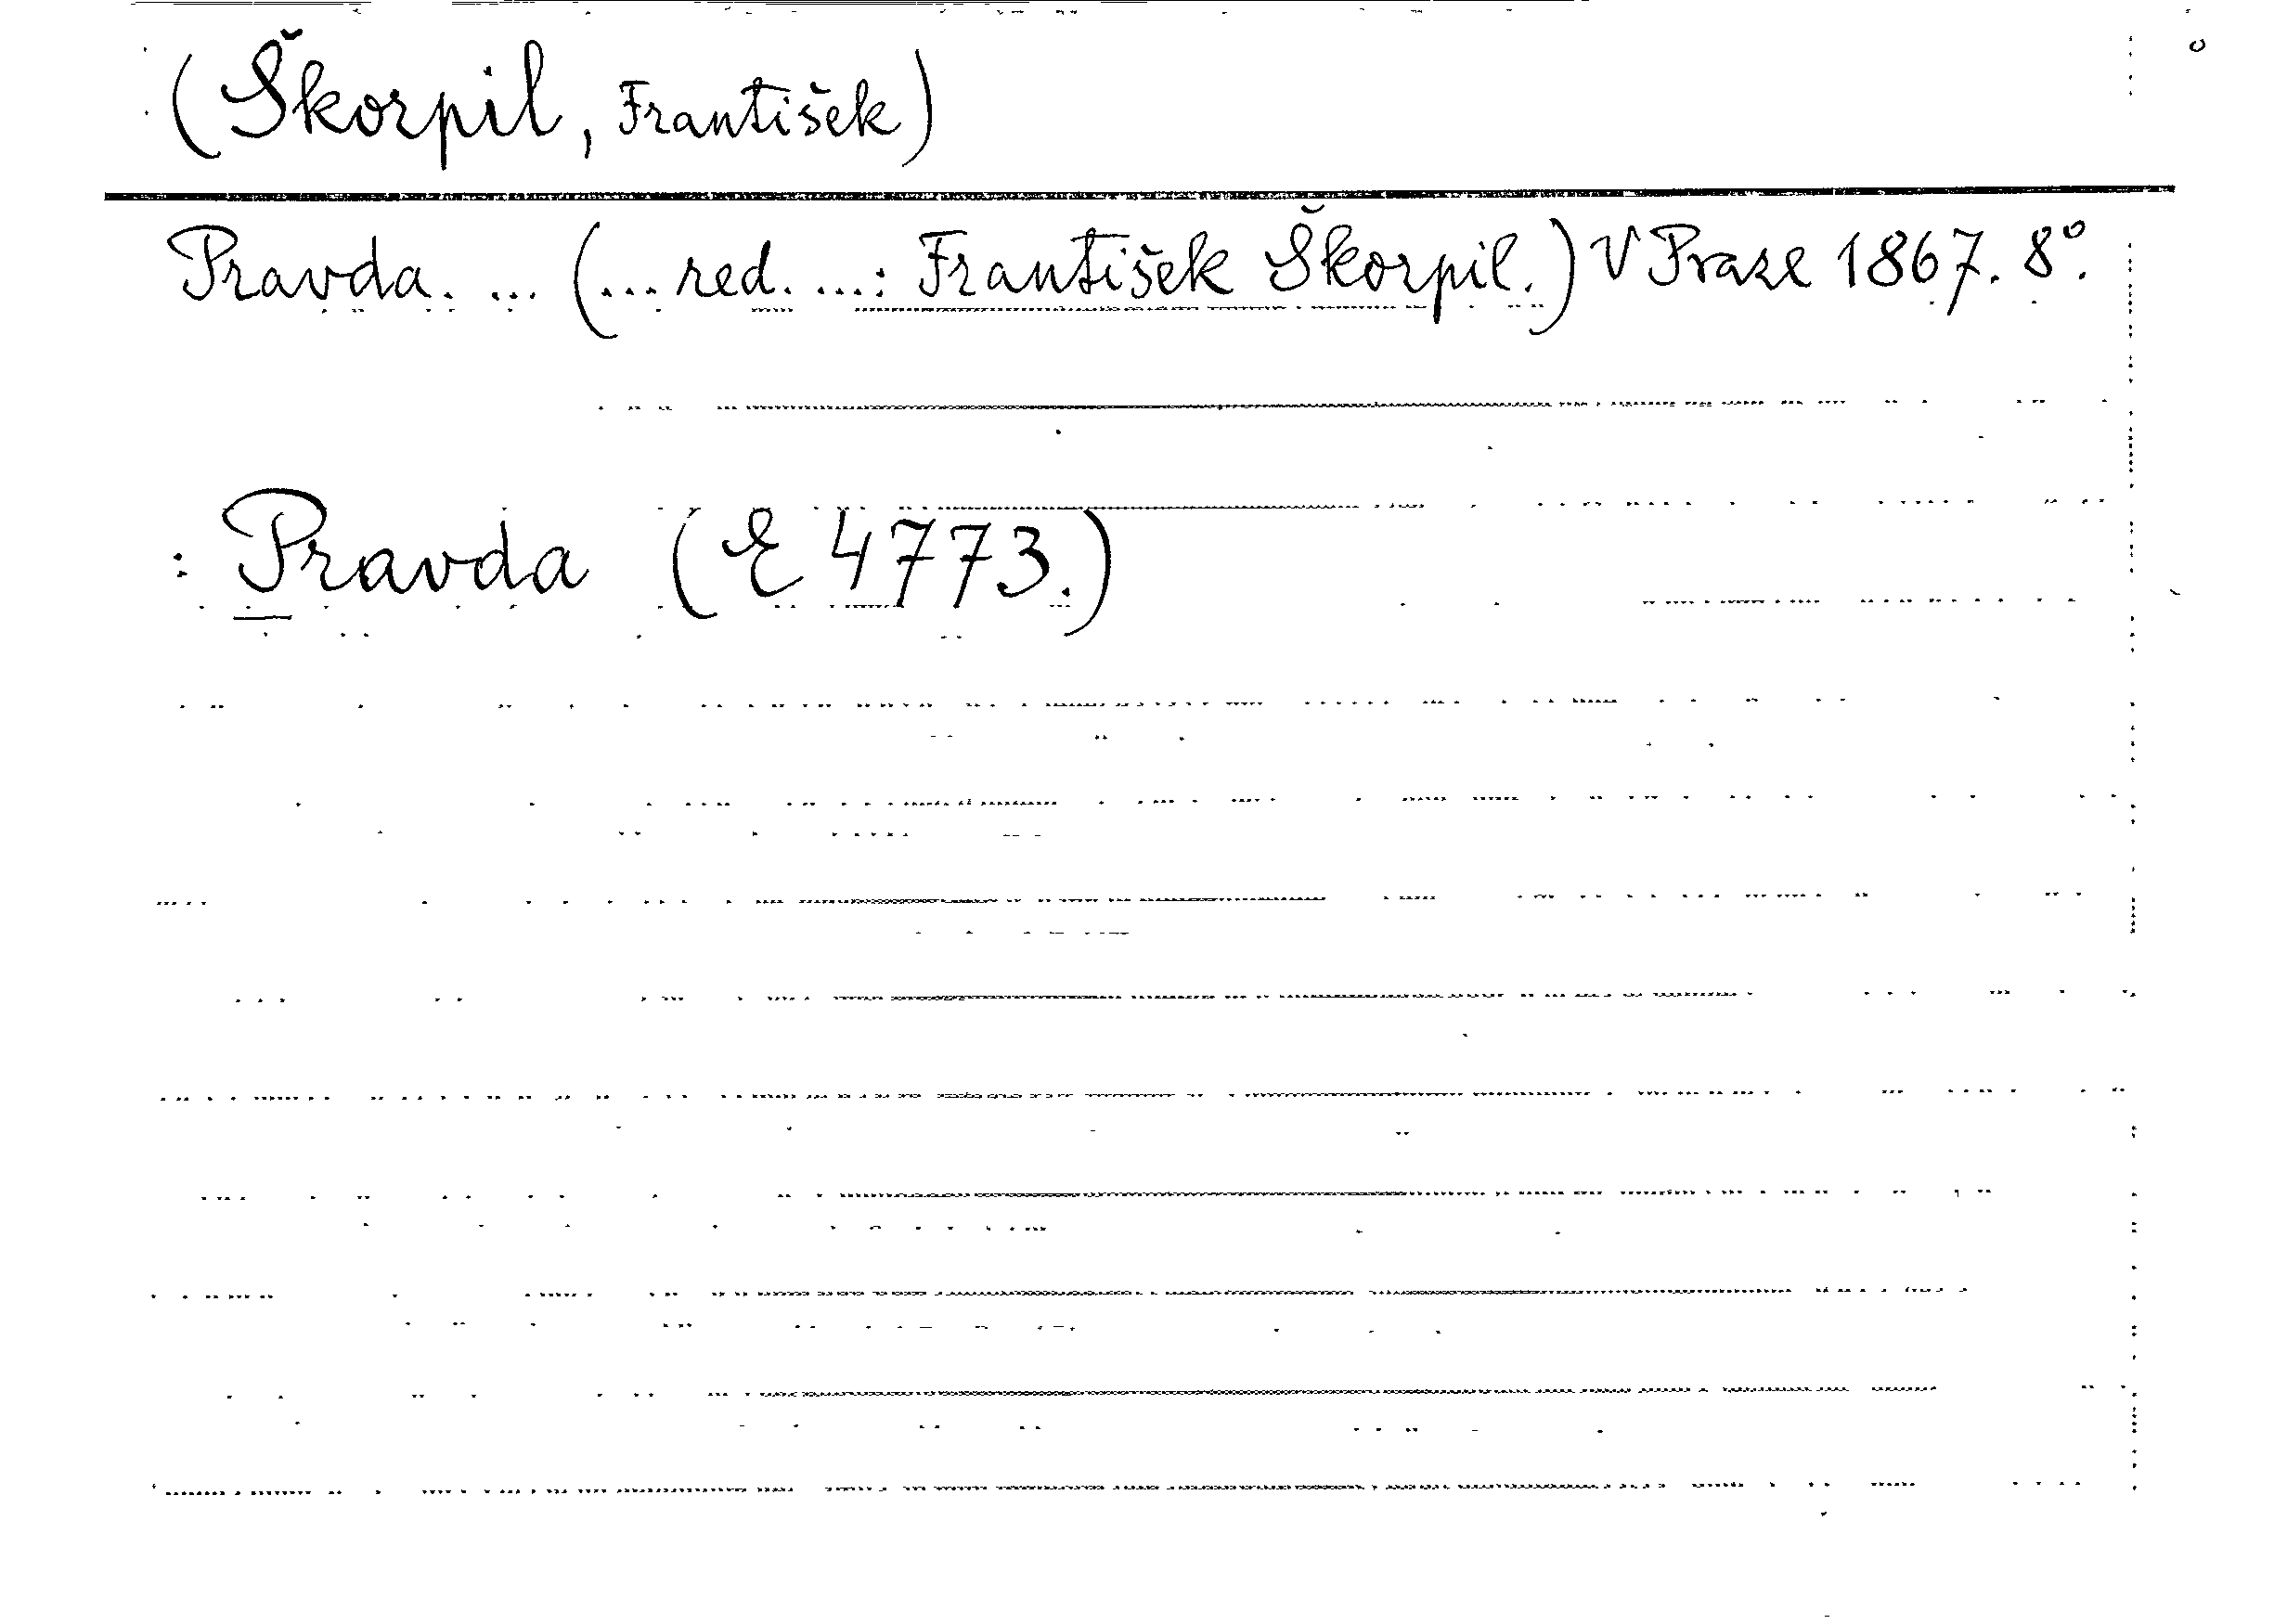 (Škorpil, František)
Pravda. ... (... red. ...: František Škorpil.) V Praze 1867. 8°.
: Pravda (E 4773.)